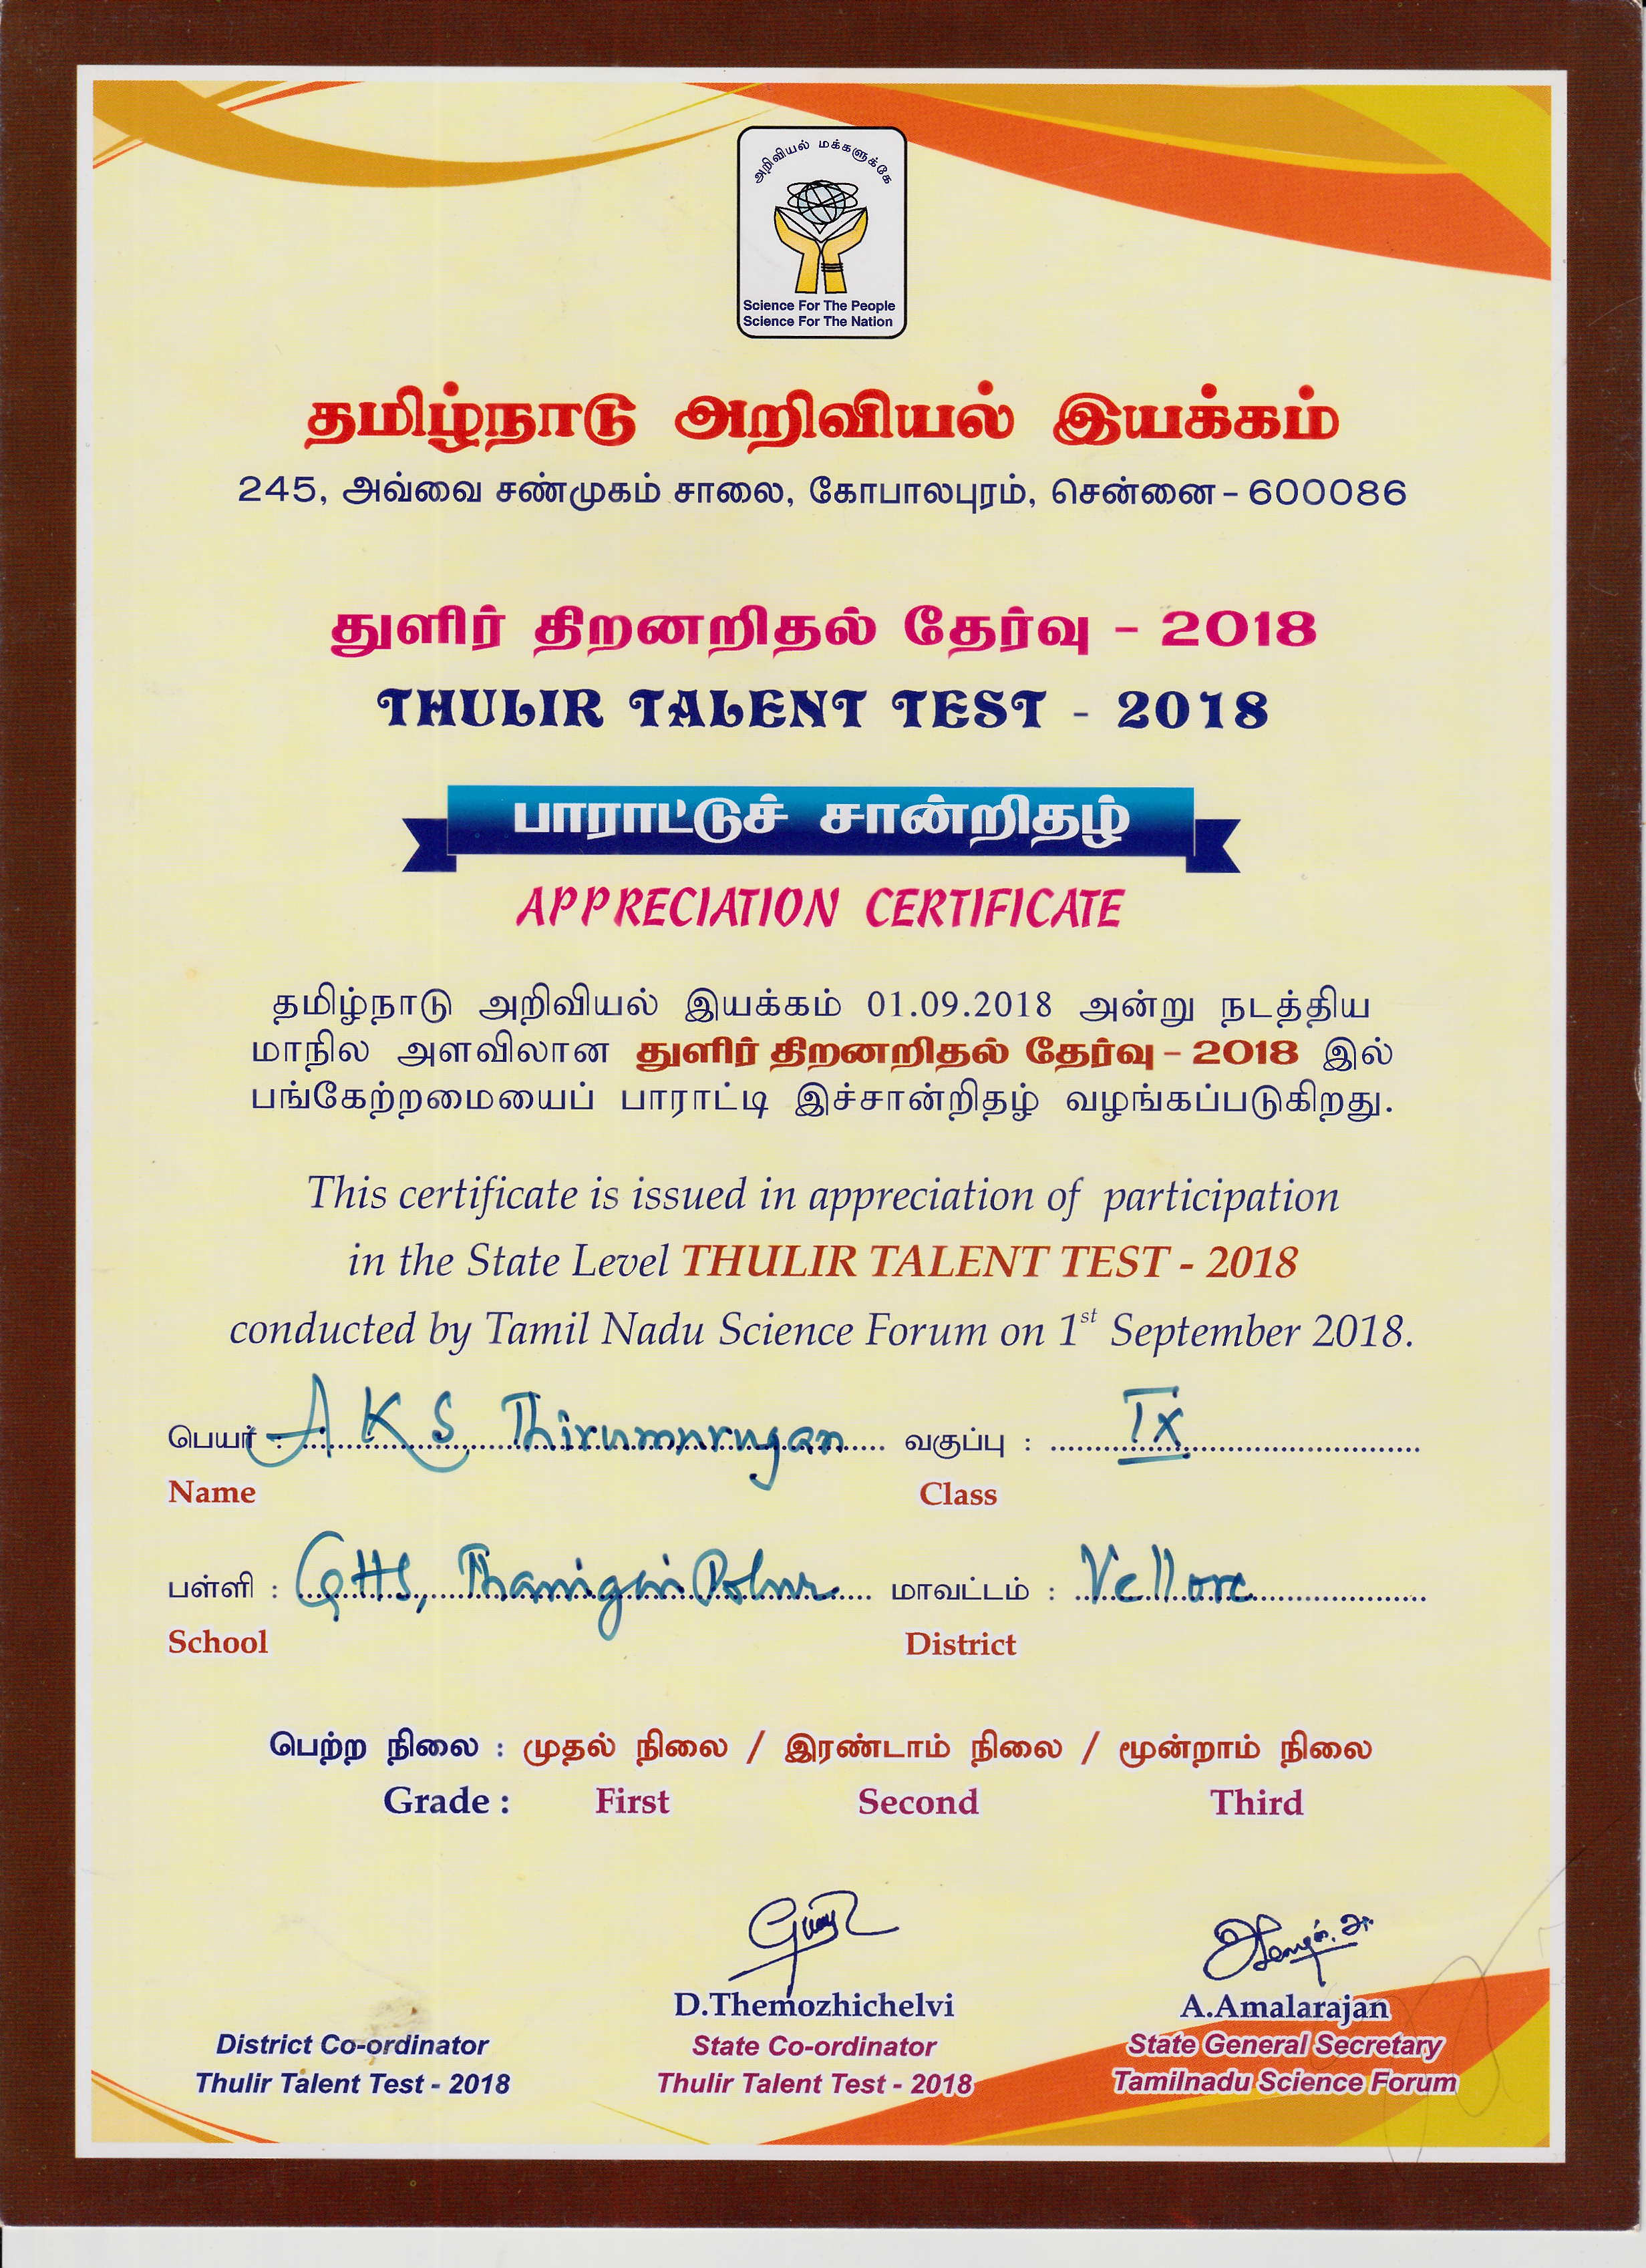 அறிவியல் மக்களுக்கே
Science For The People
Science For The Nation
தமிழ்நாடு அறிவியல் இயக்கம்
245, அவ்வை சண்முகம் சாலை, கோபாலபுரம், சென்னை - 600086
துளிர் திறனறிதல் தேர்வு - 2018
THULIR TALENT TEST - 2018
பாராட்டுச் சான்றிதழ்
APPRECIATION CERTIFICATE
தமிழ்நாடு அறிவியல் இயக்கம் 01.09.2018 அன்று நடத்திய
மாநில அளவிலான துளிர் திறனறிதல் தேர்வு - 2018 இல்
பங்கேற்றமையைப் பாராட்டி இச்சான்றிதழ் வழங்கப்படுகிறது.
This certificate is issued in appreciation of participation
in the State Level THULIR TALENT TEST - 2018
conducted by Tamil Nadu Science Forum on 1st September 2018.
பெயர் : A K S Thirumurugan வகுப்பு : IX
Name Class
பள்ளி : GHS, Thanigai Polur மாவட்டம் : Vellore
School District
பெற்ற நிலை : முதல் நிலை / இரண்டாம் நிலை / மூன்றாம் நிலை
Grade : First Second Third
D.Themozhichelvi A.Amalarajan
District Co-ordinator State Co-ordinator State General Secretary
Thulir Talent Test - 2018 Thulir Talent Test - 2018 Tamilnadu Science Forum